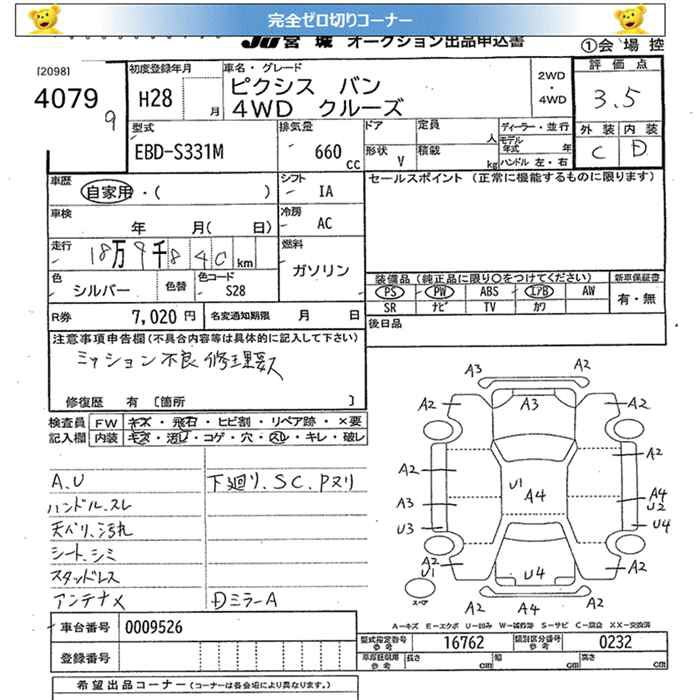 完全ゼロ切りコーナー
JU宮城 オークション出品申込書
①会場控
[2098]
4079
9
初度登録年月
H28
月
車名・グレード
ピクシス バン
4WD クルーズ
2WD
・
4WD
評価点
3.5
外装 内装
C D
型式
EBD-S331M
排気量
660
cc
ドア
形状 V
定員
人
積載
kg
ディーラー・並行
モデル年式 年
ハンドル 左・右
車歴
自家用・( )
シフト
IA
セールスポイント (正常に機能するものに限ります)
車検
年 月( 日)
冷房
AC
走行
18万9千840km
燃料
ガソリン
色
シルバー
色替
色コード
S28
装備品 (純正品に限り○をつけてください)
新車保証書
PS PW ABS エアB AW
SR ナビ TV カワ
有・無
R券 7,020円
名変通知期限 月 日
後日品
注意事項申告欄(不具合内容等は具体的に記入して下さい)
ミッション不良 修理要
修復歴 有 [箇所 ]
検査員 FW キズ・飛石・ヒビ割・リペア跡・×要
記入欄 内装 キズ・汚レ・コゲ・穴・スレ・キレ・破レ
A.U
下廻り、SC、Pヌリ
ハンドル.スレ
天ベリ、汚れ
シート.シミ
スタッドレス
アンテナ×
Dミラー A
A3
A2
A2
A3
A2
A2
A2
A3
U3
U1
A4
A4
U2
U4
A2
U1
U4
A2
スペア
A2
A4
A2
A-キズ E-エクボ U-凹み W-補修跡 S-サビ C-腐食 XX-交換済
車台番号 0009526
型式指定番号
参考
16762
類別区分番号
参考
0232
登録番号
車庫証明用
参考
長さ cm
幅 cm
高さ cm
希望出品コーナー(コーナーは各会場により異なります。)